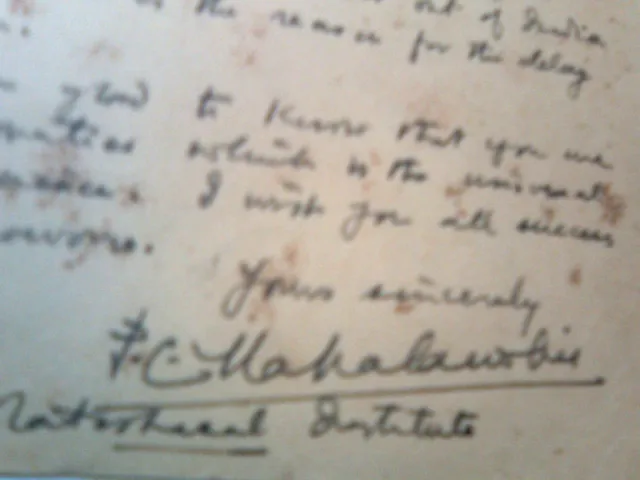 out of India
is the reason for the delay
glad to know that you are
which is the universal
I wish you all success
Yours sincerely
P.C. Mahalanobis
Statistical Institute